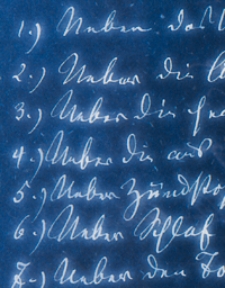 1.) Ueber das
2.) Ueber die
3.) Ueber die
4.) Ueber die aus
5.) Ueber Zündsto
6.) Ueber Schlaf
7.) Ueber den To